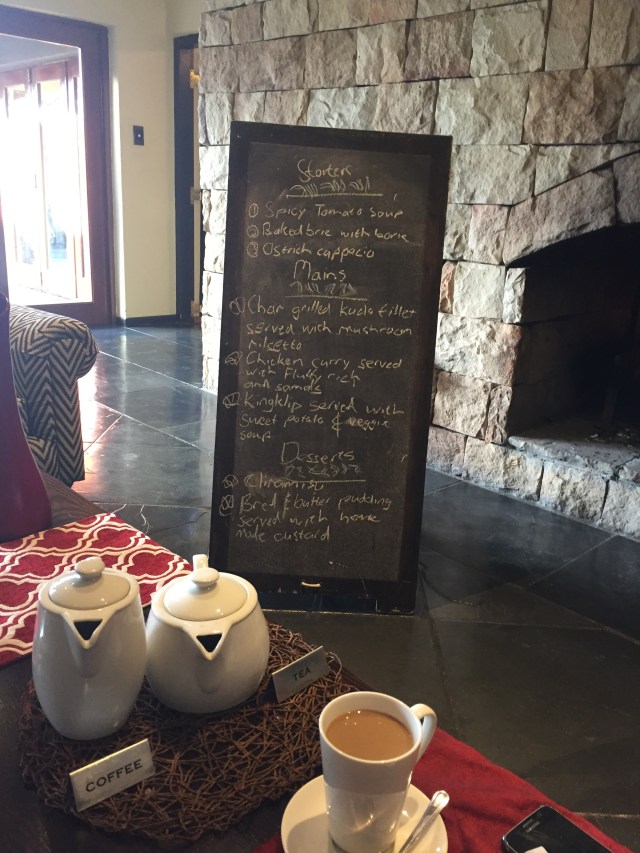 Starters
① Spicy Tomato soup
② Baked brie with borie
③ Ostrich cappacio
Mains
Char grilled kudu fillet
served with mushroom
Chicken curry served
with Fluffy rich
and samals
Kingklip served with
sweet potato & veggie
soup
Desserts
Chiramisu
Bred & butter pudding
served with home
made custard
TEA
COFFEE